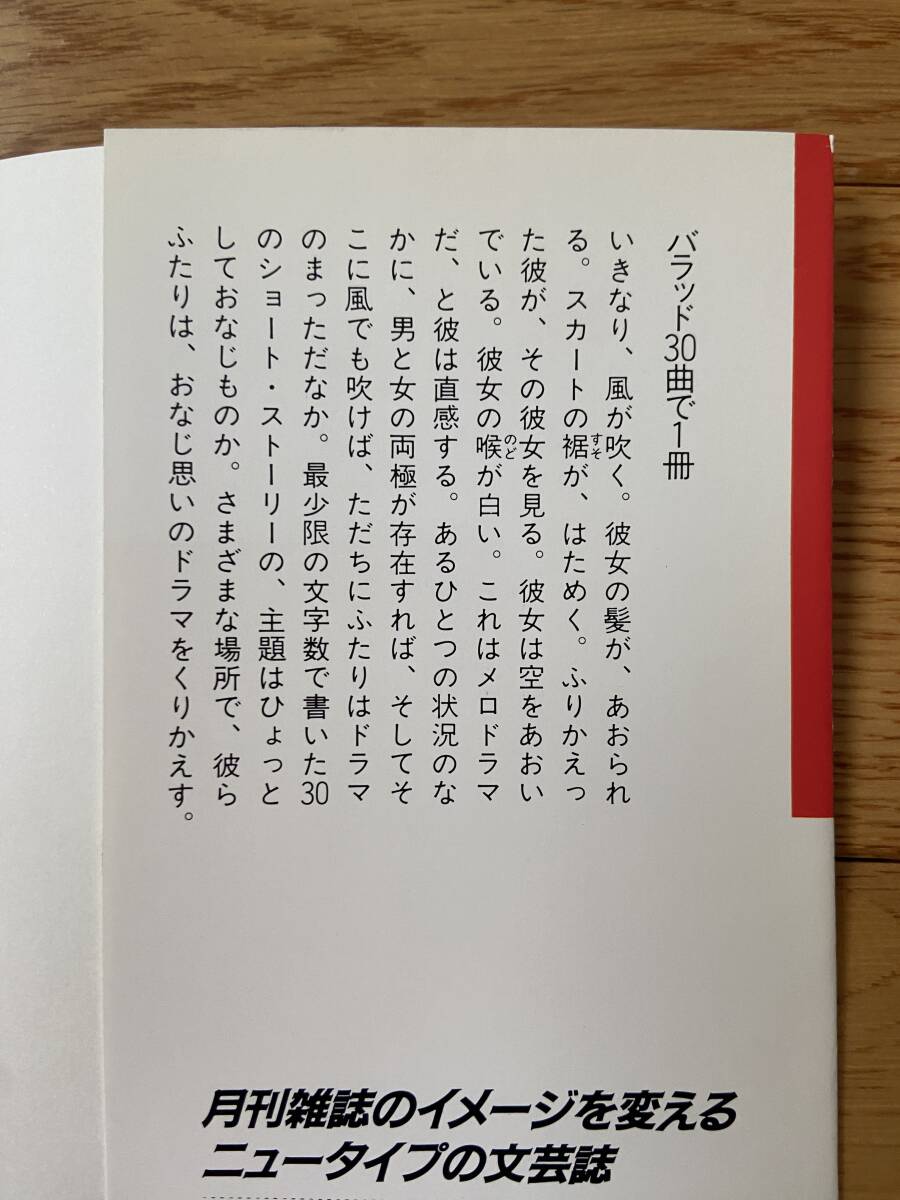 バラッド30曲で1冊
いきなり、風が吹く。彼女の髪が、あおられ
る。スカートの裾が、はためく。ふりかえっ
すそ
た彼が、その彼女を見る。彼女は空をあおい
でいる。彼女の喉が白い。これはメロドラマ
のど
だ、と彼は直感する。あるひとつの状況のな
かに、男と女の両極が存在すれば、そしてそ
こに風でも吹けば、ただちにふたりはドラマ
のまっただなか。最少限の文字数で書いた30
のショート・ストーリーの、主題はひょっと
しておなじものか。さまざまな場所で、彼ら
ふたりは、おなじ思いのドラマをくりかえす。
月刊雑誌のイメージを変える
ニュータイプの文芸誌